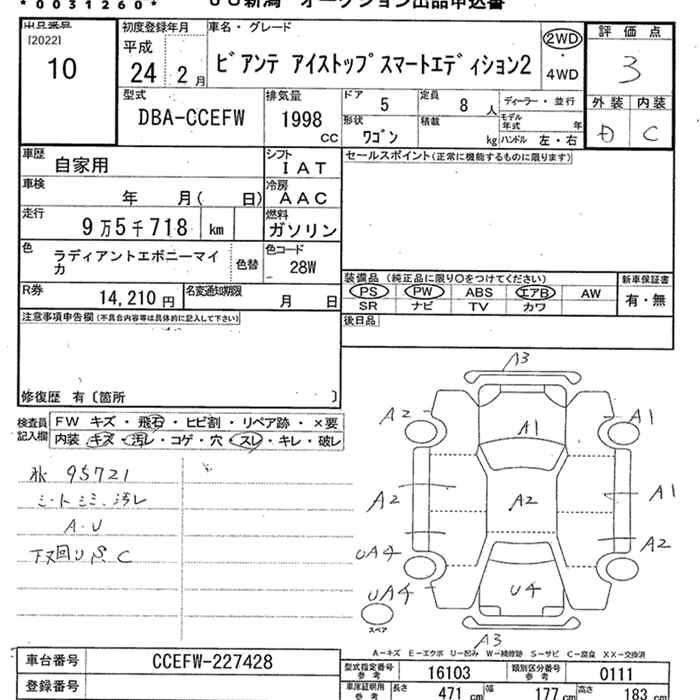 *0031260* JU新潟 オークション出品申込書
出品番号
[2022]
10
初度登録年月
平成
24年 2月
車名・グレード
ビアンテ アイストップスマートエディション2
2WD
・
4WD
評価点
3
外装 内装
D C
型式
DBA-CCEFW
排気量
1998
CC
ドア 5
定員 8 人
ディーラー・並行
形状
ワゴン
積載 kg
モデル年式 年
ハンドル 左・右
車歴
自家用
シフト
IAT
セールスポイント(正常に機能するものに限ります)
車検
年 月( 日)
冷房
AAC
走行
9万5千718 km
燃料
ガソリン
色
ラディアントエボニーマイカ
色替
色コード
28W
装備品(純正品に限り○をつけてください)
PS PW ABS エアB AW
SR ナビ TV カワ
新車保証書
有・無
R券
14,210 円
名変通知期限
月 日
後日品
注意事項申告欄(不具合内容等は具体的に記入して下さい)
修復歴 有〔箇所 〕
検査員記入欄
FW キズ・飛石・ヒビ割・リペア跡・×要
内装 キズ・汚レ・コゲ・穴・スレ・キレ・破レ
95721
シートシミ、汚レ
A・U
下回り C
A3
A2
A1
A1
A2
A2
A1
UA4
A2
UA4
U4
スペア
A3
A-キズ E-エクボ U-凹み W-補修跡 S-サビ C-腐食 XX-交換済
車台番号
CCEFW-227428
型式指定番号
参考
16103
類別区分番号
参考
0111
登録番号
車庫証明用
参考
長さ 471 cm
幅 177 cm
高さ 183 cm